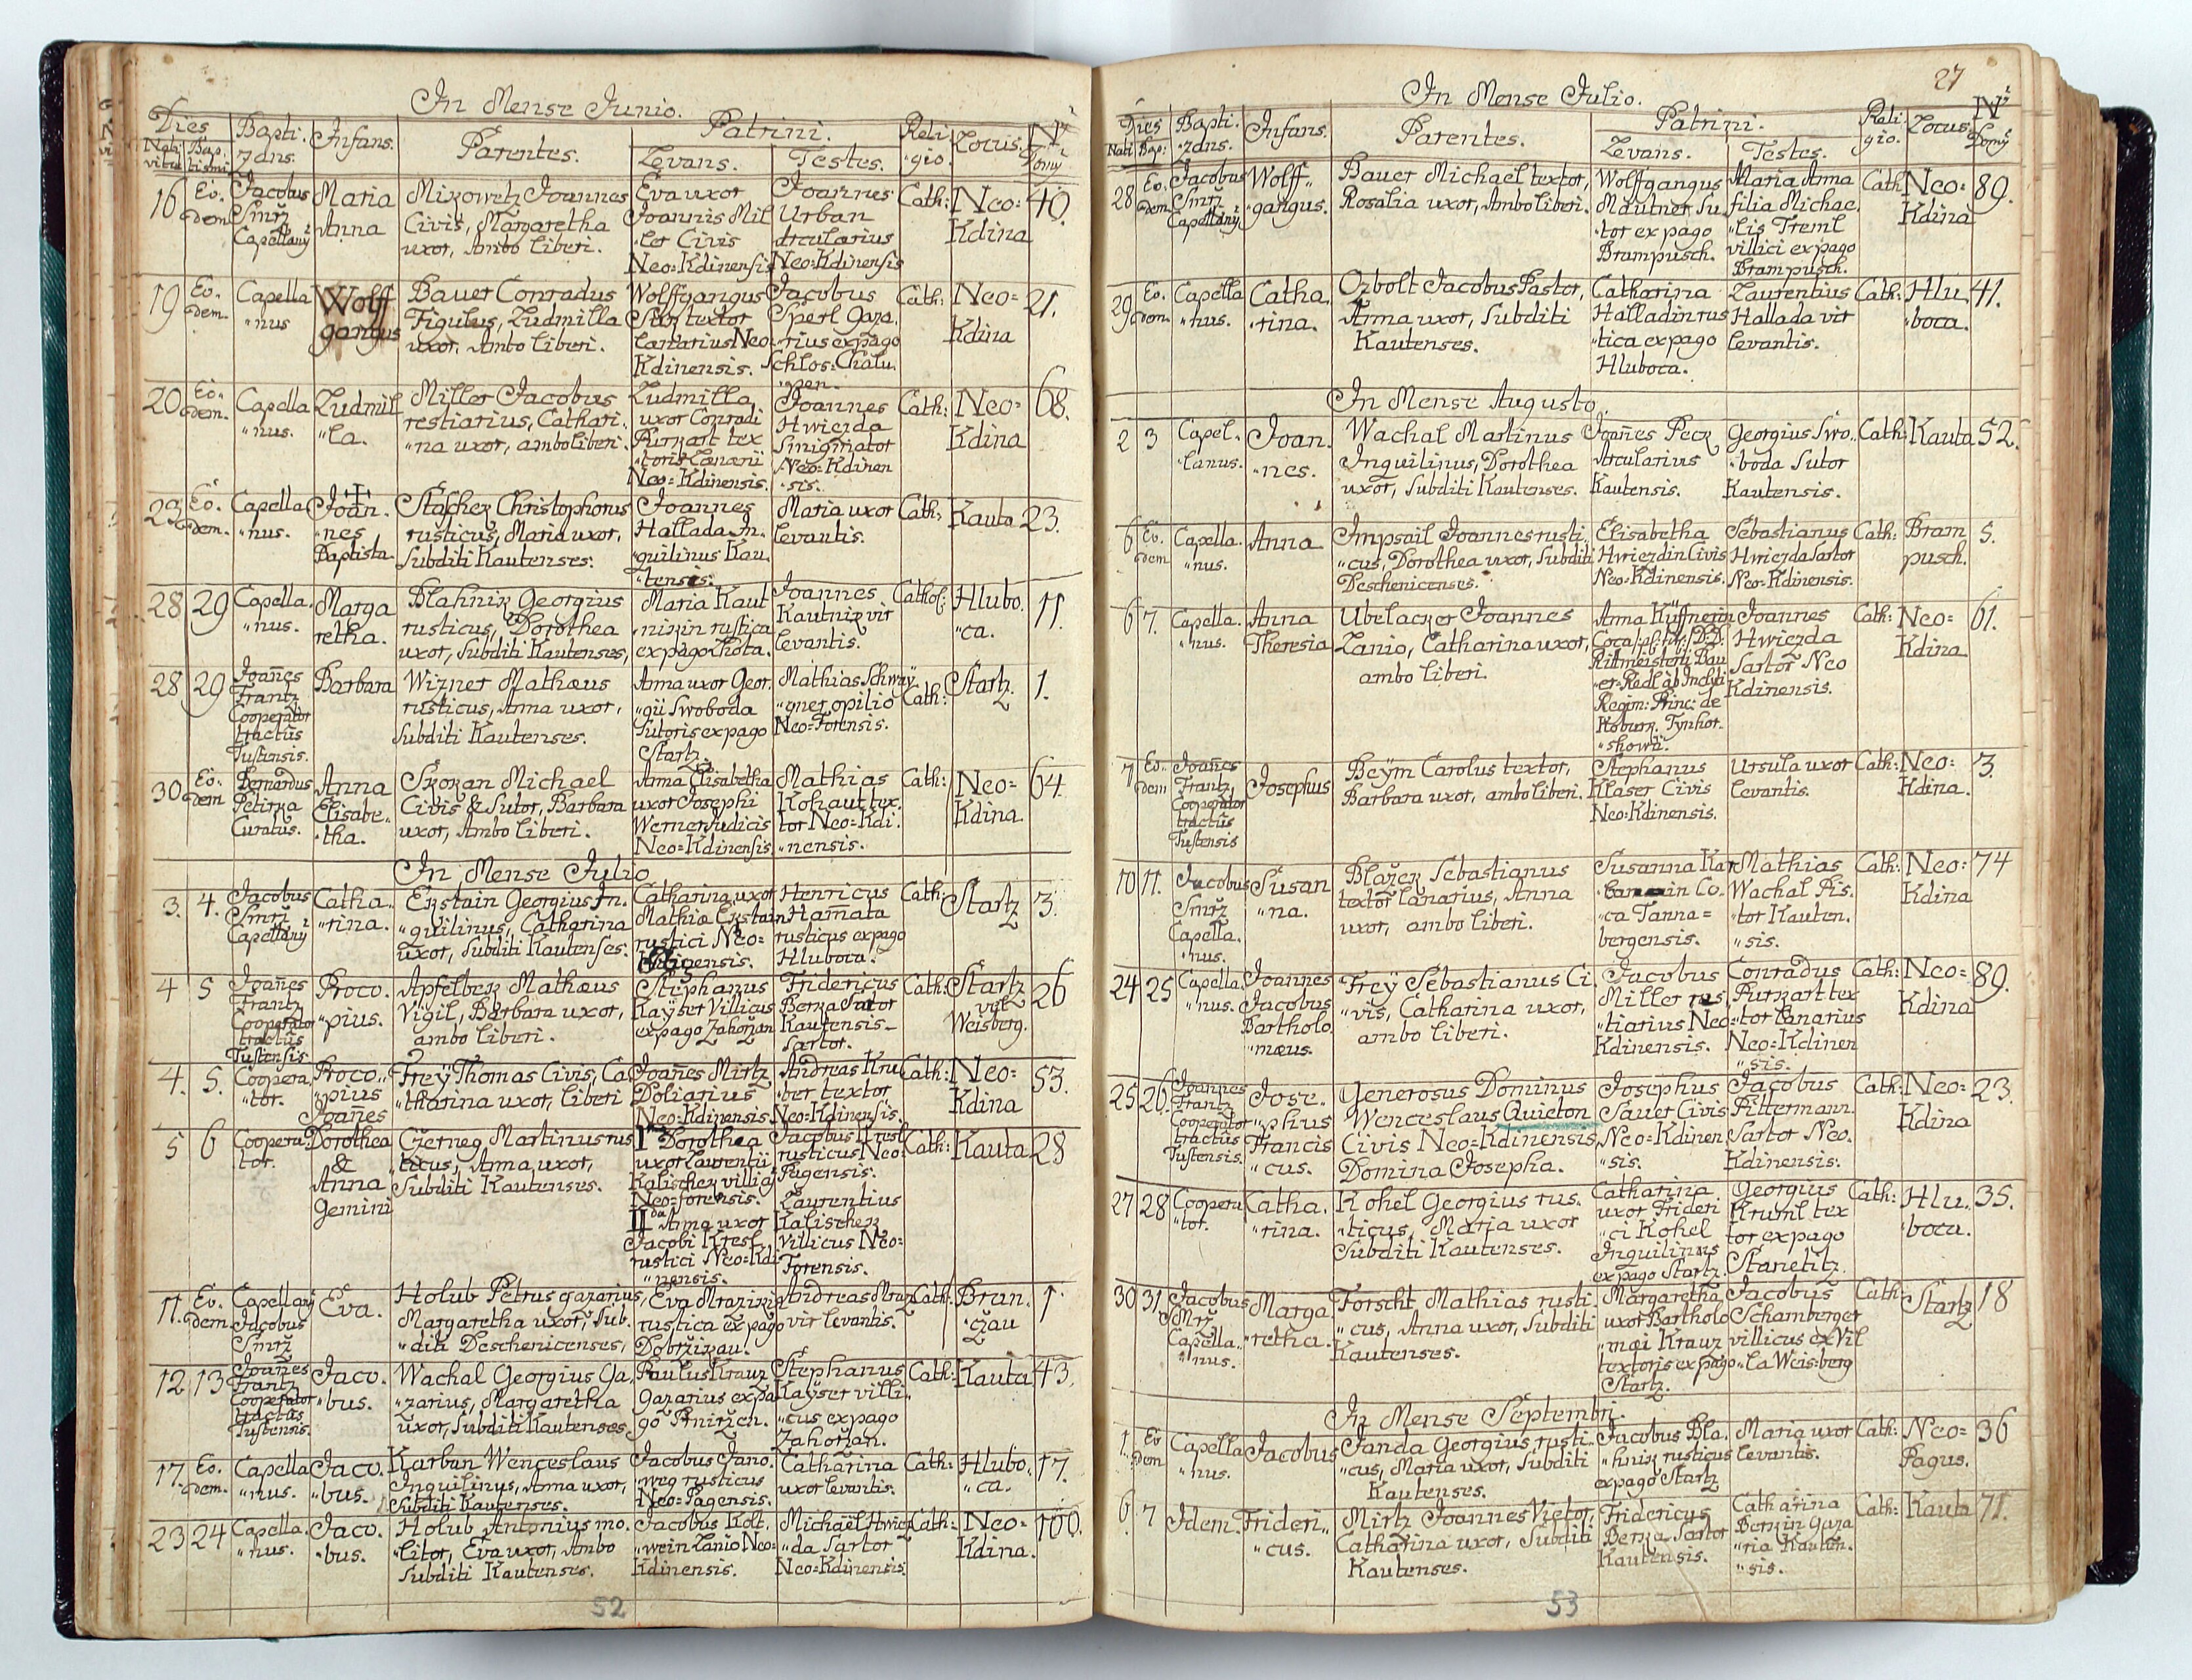 In Mense Junio.
Dies
Nati
vita
Bap
tismi
Bapti
zans.
Infans.
Parentes.
Patrini.
Levans.
Testes.
Reli
gio.
Locus.
Domy
16
Eo.
dem
Jacobus
Smrž
Capellany
Maria
Anna
Mixowetz Joannes
Civis, Margaretha
uxor, Ambo liberi.
Eva uxor
Joannis Mil
ler Civis
Neo=Kdinensis
Joannes
Urban
Arcularius
Neo=Kdinensis
Cath:
Neo=
Kdina
40.
19
Eo.
dem.
Capella
"nus
Wolff
gangus
Bauer Conradus
Figulus, Ludmilla
uxor. Ambo liberi.
Wolffgangus
textor
Lanarius Neo=
Kdinensis.
Jacobus
Sperl Gaza.
rius ex pago
Schlos=Chalu.
"pen.
Cath:
Neo=
Kdina
21.
20
Eo.
dem.
Capella
"nus.
Ludmil
"la.
Miller Jacobus
restiarius, Cathari.
"na uxor, ambo liberi.
Ludmilla
uxor Conradi
Purkart tex
"toris Lanarii
Neo=Kdinensis.
Joannes
Hwiezda
Smigmator
Neo=Kdinen
"sis.
Cath:
Neo=
Kdina
68.
23
Eo.
dem.
Capella
"nus.
Joan.
"nes
Baptista.
Stascheк Christophorus
rusticus, Maria uxor,
Subditi Kautenses.
Joannes
Hallada In.
"quilinus Kau.
"tensis.
Maria uxor
levantis.
Cath:
Kauta
23.
28
29
Capella.
"nus.
Marga
retha.
Blahnik Georgius
rusticus, Dorothea
uxor, Subditi Kautenses,
Maria Kaut
"nikin rustica
ex pago Lhota.
Joannes
Kautnik vir
levantis.
Cathol:
Hlubo.
"ca.
11.
28
29
Joañes
Frantz
Cooperator
tractûs
Tustensis.
Barbara
Wizner Mathæus
rusticus, Anna uxor,
Subditi Kautenses.
Anna uxor Geor.
"gii Swoboda
Sutoris ex pago
Startz.
Mathias
"gner opilio
Neo=Forensis.
Cath:
Startz.
1.
30
Eo.
dem
Bernardus
Petirka
Curatus.
Anna
Elisabe.
"tha.
Skokan Michael
Civis & Sutor, Barbara
uxor, Ambo liberi.
Anna Elisabetha
uxor Josephi
Werner Judicis
Neo=Kdinensis.
Mathias
Kohaut tex.
tor Neo=Kdi.
"nensis.
Cath:
Neo=
Kdina.
64.
In Mense Julio
3.
4.
Jacobus
Smrž
Capellany
Catha.
"rina.
Ekstain Georgius In.
"quilinus, Catharina
uxor, Subditi Kautenses.
Catharina uxor
Mathiæ Ekstain
rustici Neo=
Henricus
Hamata
rusticus ex pago
Hluboca.
Cath:
Startz
3.
4
5
Joañes
Frantz
Cooperator
tractûs
Tustensis
Proco.
"pius.
Apfelbek Mathæus
Vigil, Barbara uxor,
ambo liberi.
Stephanus
Kaÿser Villicus
ex pago Zahoržan
Fridericus
Berka
Kautensis
Sartor.
Cath:
Startz
vel
Weisberg.
26
4.
5.
Coopera.
"tor.
Proco.
"pius
Joañes
Freÿ Thomas Civis, Ca
"tharina uxor, liberi
Joañes Mirtz
Doliarius
Neo=Kdinensis
Andreas Kru
ber textor
Neo=Kdinensis.
Cath:
Neo=
Kdina
53.
5
6
Coopera.
tor.
Dorothea
&
Anna
Gemini
Czerneg Martinus rus
ticus, Anna uxor,
Subditi Kautenses.
Dorothea
uxor Laurentii
Kalischek villici
Neo=forensis.
II da Anna uxor
Jacobi Kresl
rustici Neo=Kdi
"nensis.
Jacobus Kresl
rusticus Neo=
Pagensis.
Laurentius
Kalischek
Villicus Neo=
Forensis.
Cath:
Kauta
28
11.
Eo.
dem.
Capellany
Jacobus
Smrž
Eva.
Holub Petrus gazarius,
Margaretha uxor, Sub.
"diti Deschenicenses,
Eva Mrazikin
rustica ex pago
Dobržikau.
Andreas Mraz
vir levantis.
Cath:
Bran.
"cžau
1.
12
13
Joañes
Frantz
Cooperator
tractûs
Tustensis.
Jaco.
"bus.
Wachal Georgius Ga.
"zarius, Margaretha
uxor, Subditi Kautenses.
Paulus Krauz
Gazarius ex pa
go Pniržen.
Stephanus
Kaÿser villi.
"cus ex pago
Zahoržan.
Cath:
Kauta
43.
17.
Eo.
dem.
Capella
"nus.
Jaco.
"bus.
Karban Wenceslaus
Inquilinus, Anna uxor,
Subditi Kautenses.
Jacobus Jano.
"weg rusticus
Neo=Pagensis.
Catharina
uxor levantis.
Cath:
Hlubo.
"ca.
17.
23
24
Capella.
"nus.
Jaco.
"bus.
Holub Antonius mo.
"litor, Eva uxor, Ambo
Subditi Kautenses.
Jacobus Kolt.
"wein Lanio Neo=
Kdinensis.
Michaël Hwiez
"da Sartor
Neo=Kdinensis.
Cath:
Neo=
Kdina.
100.
52
27
In Mense Julio.
Dies
Nati
Bap:
Bapti.
"zans.
Infans.
Parentes.
Patrini.
Levans.
Testes.
Reli
gio.
Locus.
Domy
28
Eo.
dem.
Jacobus
Smrž
Capellany
Wolff"
"gangus.
Bauer Michaël textor,
Rosalia uxor, Ambo liberi.
Wolffgangus
Mautner Su
"tor ex pago
Brampusch.
Maria Anna
filia Michae.
"lis Treml
villici ex pago
Brampusch.
Cath
Neo=
Kdina
89.
29
Eo.
dem.
Capella
"nus.
Catha.
"rina.
Ozbolt Jacobus Pastor,
Anna uxor, Subditi
Kautenses.
Catharina
Halladin rus
"tica ex pago
Hluboca.
Laurentius
Hallada vir
levantis.
Cath:
Hlu.
"boca.
41.
In Mense Augusto.
2
3
Capel.
"lanus.
Joan.
"nes.
Wachal Martinus
Inquilinus, Dorothea
uxor, Subditi Kautenses.
Joañes Peck
Arcularius
Kautensis.
Georgius Swo..
"boda Sutor
Kautensis.
Cath:
Kauta
52.
6
Eo.
dem
Capella.
"nus.
Anna
Impsail Joannes rusti.
"cus, Dorothea uxor, Subditi
Deschenicenses.
Elisabetha
Hwiezdin Civis
Neo=Kdinensis.
Sebastianus
Hwiezda Sartor
Neo=Kdinensis.
Cath:
Bram
pusch.
5.
6
7.
Capella.
"nus.
Anna
Theresia
Ubelacker Joannes
Lanio, Catharina uxor,
ambo liberi.
Anna Küffnerin
Rittmeisteri Bau
"er=Redl ab Inclyti
Regim: Princ: de
Koburg. Tynhor.
"showii.
Joannes
Hwiezda
Sartor Neo
Kdinensis.
Cath:
Neo=
Kdina
61.
7
Eo.
dem
Joañes
Frantz
Cooperator
tractûs
Tustensis
Josephus
Beÿm Carolus textor,
Barbara uxor, ambo liberi.
Stephanus
Klaser Civis
Neo=Kdinensis.
Ursula uxor
levantis.
Cath:
Neo=
Kdina.
3.
10
11.
Jacobus
Smrž
Capella.
"nus.
Susan
"na.
Blažek Sebastianus
textor Lanarius, Anna
uxor, ambo liberi.
Susanna Kar
in Co.
"ca Tanna=
bergensis.
Mathias
Wachal Pis.
"tor Kauten.
"sis.
Cath:
Neo=
Kdina
74
24
25
Capella.
"nus.
Joannes
Jacobus
Bartholo.
"mæus.
Freÿ Sebastianus Ci.
"vis, Catharina uxor,
ambo liberi.
Jacobus
Miller res
"tiarius Neo=
Kdinensis.
Conradus
Purkart tex
"tor Lanarius
Neo=Kdinen
"sis.
Cath:
Neo=
Kdina
89.
25
26.
Joannes
Frantz
Cooperator
tractûs
Tustensis.
Jose.
"phus
Francis
"cus.
Generosus Dominus
Wenceslaus Quieton
Civis Neo=Kdinensis,
Domina Josepha.
Josephus
Sauer Civis
Neo=Kdinen.
"sis.
Jacobus
Pittermann
Sartor Neo.
Kdinensis.
Cath:
Neo=
Kdina
23.
27
28
Coopera
"tor.
Catha.
"rina.
Kohel Georgius rus.
"ticus, Maria uxor
Subditi Kautenses.
Catharina
uxor Frideri
"ci Kohel
Inquilinus
ex pago Startz.
Georgius
Kruml tex
tor ex pago
Stanetitz.
Cath:
Hlu.
"boca.
35.
30
31
Jacobus
Smrž
Capella.
"nus.
Marga
"retha.
Forscht, Mathias rusti.
"cus, Anna uxor, Subditi
Kautenses.
Margaretha
uxor Bartholo
"mæi Krauz
textoris ex pago
Startz.
Jacobus
Schamberger
villicus ex Vil
"la Weis=berg
Cath:
Startz
18
In Mense Septembri.
1.
Eo
dem
Capella
"nus.
Jacobus
Janda Georgius rusti..
"cus, Maria uxor, Subditi
Kautenses.
Jacobus Bla.
"hnik rusticus
ex pago Startz
Maria uxor
levantis.
Cath:
Neo=
Pagus.
36
6.
7
Idem.
Frideri..
"cus.
Mirtz Joannes Vietor,
Catharina uxor, Subditi
Kautenses.
Fridericus
Berka Sartor
Kautensis.
Catharina
Berkin Gaza
"ria Kauten.
"sis.
Cath:
Kauta
71.
53